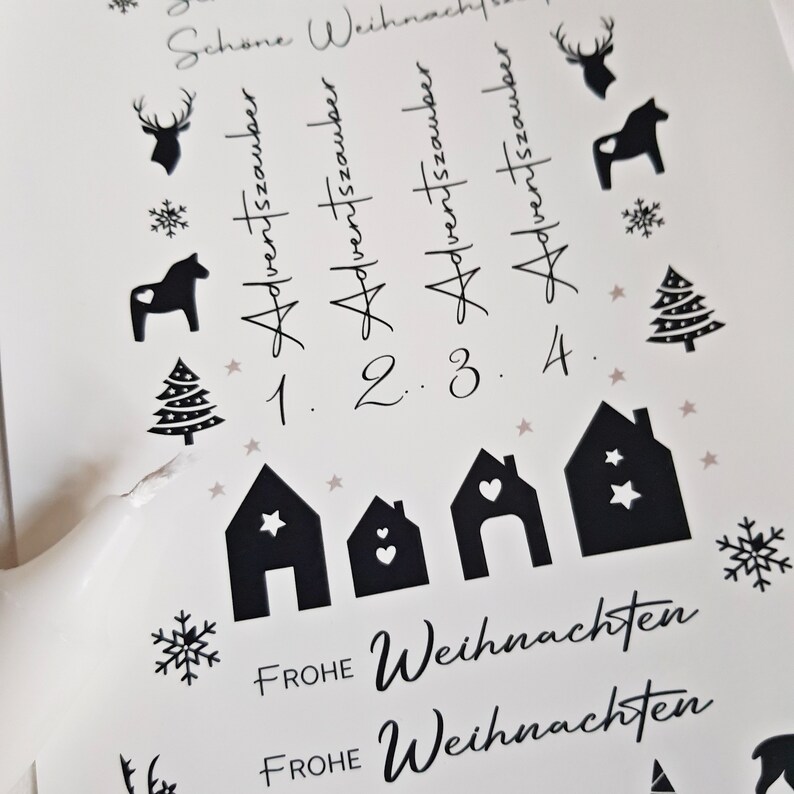 Schöne Weihnachtsza
Adventszauber
Adventszauber
Adventszauber
Adventszauber
1.
2..
3.
4.
FROHE Weihnachten
FROHE Weihnachten